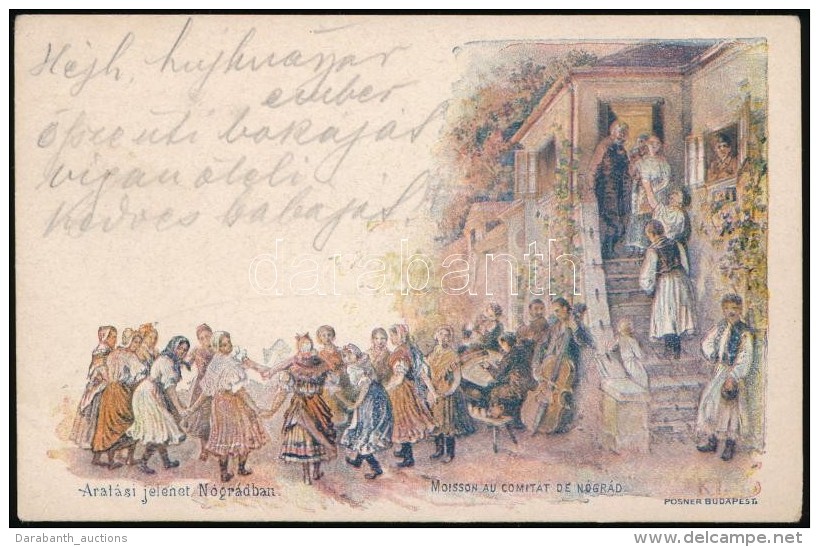 Hejh, hujhnárar
ember
össze üti bokáját
vigan öleli
kedves babáját.
darabanth
Aratási jelenet Nógrádban.
MOISSON AU COMITAT DE NÓGRÁD.
POSNER BUDAPEST.
Darabanth_auctions
delcampe.net